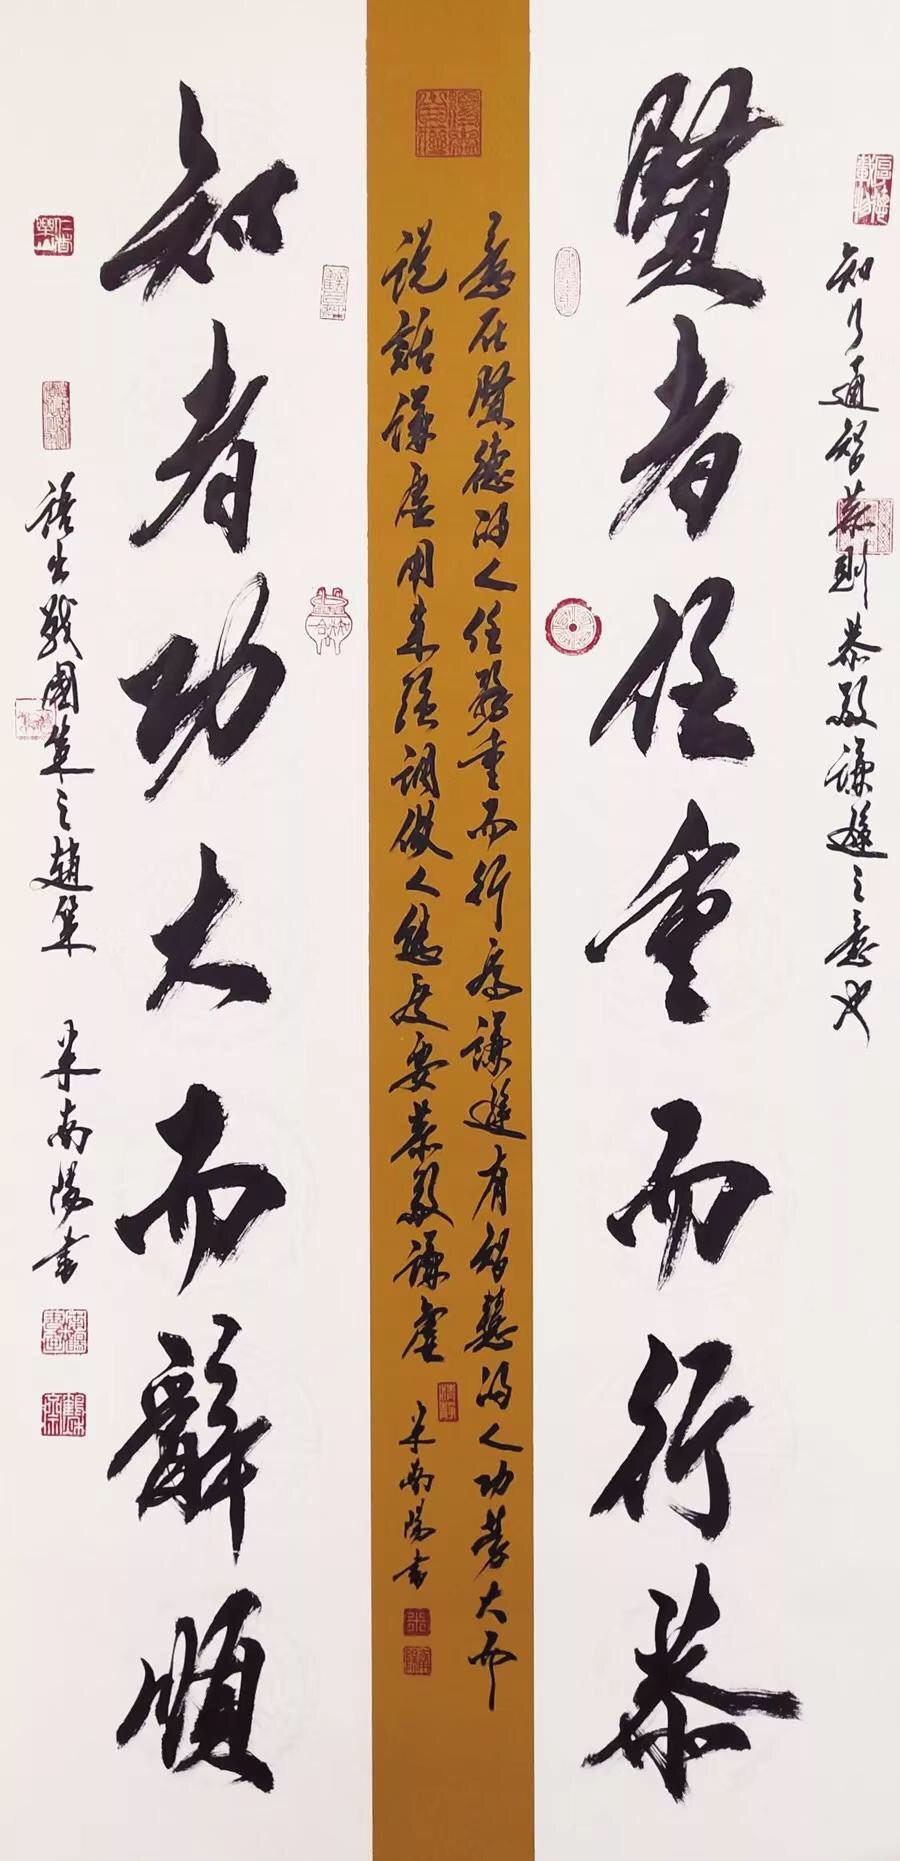 知乃通智恭則恭敬謙遜之意也
賢者任重而行恭
意在賢德的人任務重而行為謙遜有智慧的人功勞大而
説話謙虛用来强調做人態度要恭敬謙虛 米南陽書
知者功大而辭順
語出戰國策之趙策 米南陽書